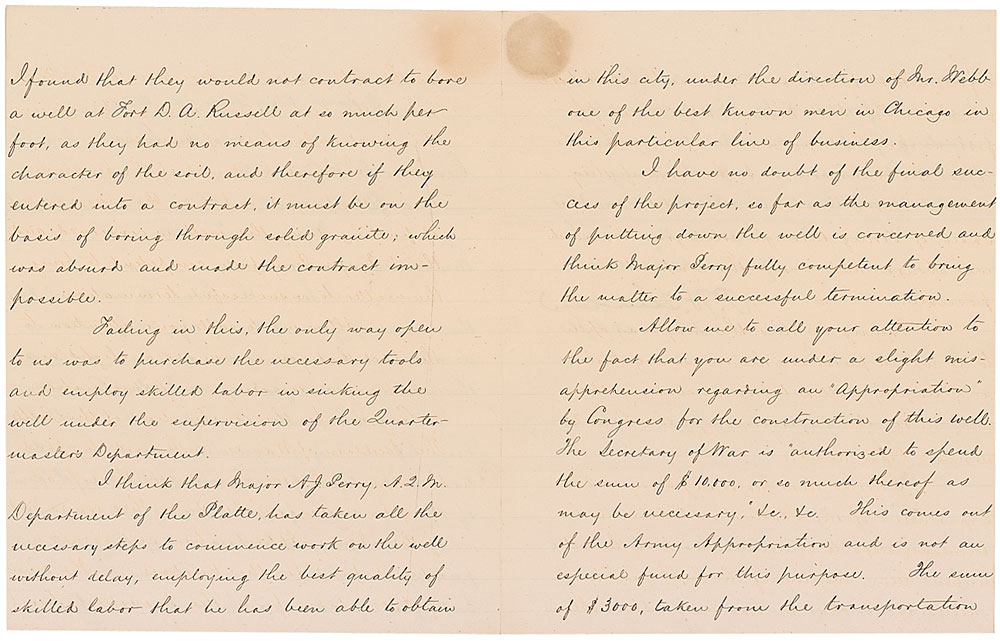 I found that they would not contract to bore
a well at Fort D. A. Russell at so much per
foot, as they had no means of knowing the
character of the soil, and therefore if they
entered into a contract, it must be on the
basis of boring through solid granite; which
was absurd and made the contract im-
possible.
Failing in this, the only way open
to us was to purchase the necessary tools
and employ skilled labor in sinking the
well under the supervision of the Quarter-
master's Department.
I think that Major A J Perry, A. Q. M.
Department of the Platte, has taken all the
necessary steps to commence work on the well
without delay, employing the best quality of
skilled labor that he has been able to obtain
in this city, under the direction of Mr. Webb
one of the best known men in Chicago in
this particular line of business.
I have no doubt of the final suc-
cess of the project, so far as the management
of putting down the well is concerned and
think Major Perry fully competent to bring
the matter to a successful termination.
Allow me to call your attention to
the fact that you are under a slight mis-
apprehension regarding an "Appropriation"
by Congress for the construction of this well.
The Secretary of War is "authorized to spend
the sum of $10.000, or so much thereof as
may be necessary," &c., &c. This comes out
of the Army Appropriation and is not an
especial fund for this purpose. The sum
of $3000, taken from the transportation